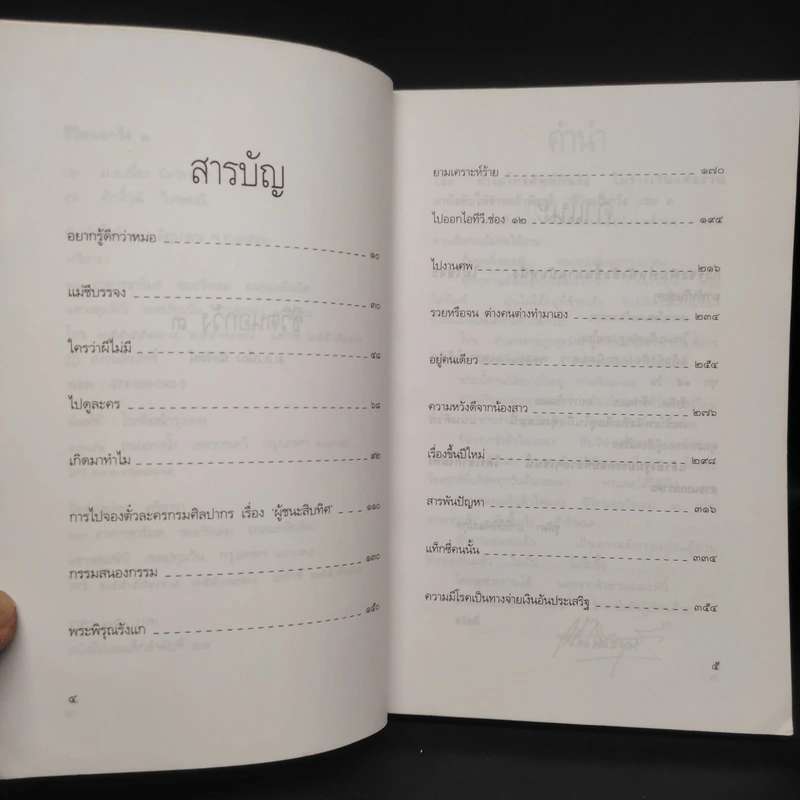 สารบัญ
อยากรู้ดีกว่าหมอ ๑๐
แม่ชีบรรจง ๓๐
ใครว่าผีไม่มี ๔๘
ไปดูละคร ๖๘
เกิดมาทำไม ๙๒
การไปจองตั๋วละครกรมศิลปากร เรื่อง 'ผู้ชนะสิบทิศ' ๑๑๐
กรรมสนองกรรม ๑๓๐
พระพิรุณรังแก ๑๕๐
๔
ยามเคราะห์ร้าย ๑๗๐
ไปออกไอทีวี.ช่อง ๑๒ ๑๙๔
ไปงานศพ ๒๑๖
รวยหรือจน ต่างคนต่างทำมาเอง ๒๓๔
อยู่คนเดียว ๒๕๔
ความหวังดีจากน้องสาว ๒๗๖
เรื่องขึ้นปีใหม่ ๒๙๘
สารพันปัญหา ๓๑๖
แท็กซี่คนนั้น ๓๓๔
ความมีโรคเป็นทางจ่ายเงินอันประเสริฐ ๓๕๔
๕